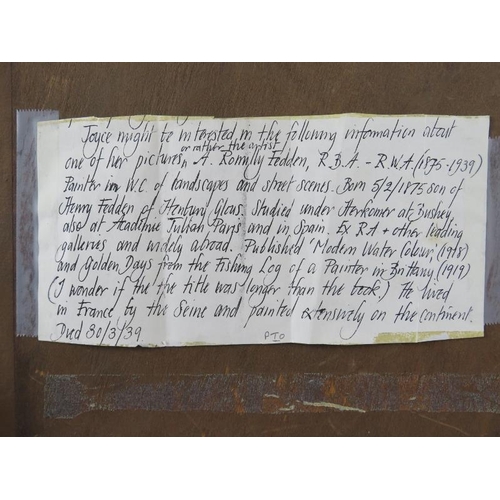 Joyce might be interested in the following information about
or rather the artist
one of her pictures, A. Romilly Fedden, R.B.A. - R.W.A. (1875-1939)
Painter in W.C of landscapes and street scenes. Born 5/2/1875 son of
Henry Fedden of Henbury Glous. Studied under Herkomer at Bushey
also at Academie Julian Paris and in Spain. Ex RA + other leading
galleries and widely abroad. Published 'Modern Water Colour, (1918)
and Golden Days from the Fishing Log of a Painter in Brittany (1919)
(I wonder if the the title was longer than the book.) He lived
in France by the Seine and painted extensively on the continent.
Died 30/3/39
PTO